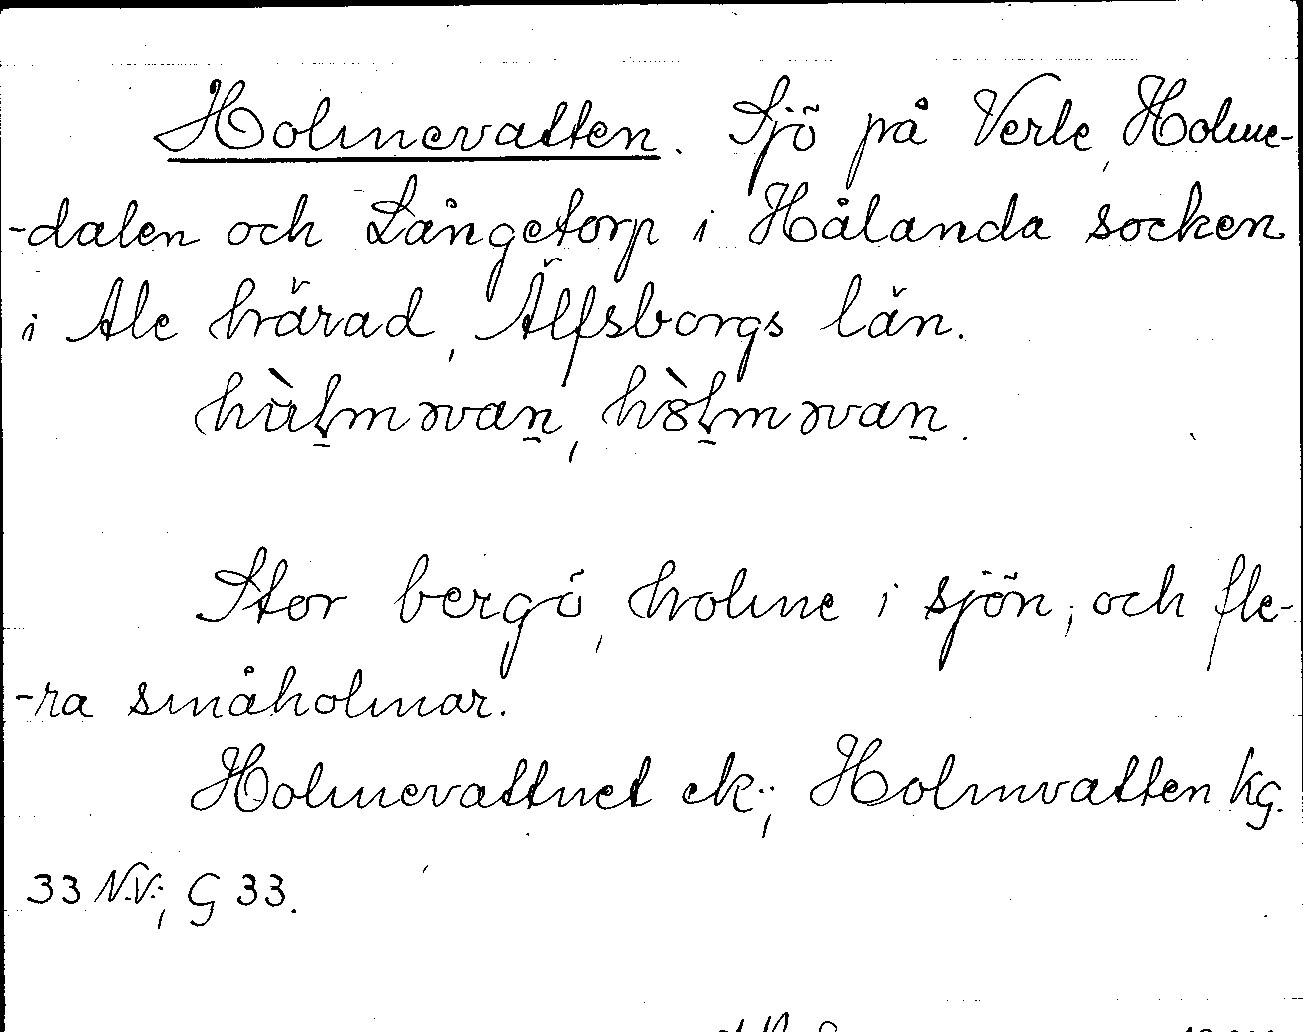 Holmevatten. Sjö på Verle, Holme-
-dalen och Långetorp i Hålanda socken
i Ale härad, Älfsborgs län.
hùḻməvaṉ, hòḻməvaṉ.
Stor bergö, holme i sjön, och fle-
-ra småholmar.
Holmevattnet ek.; Holmvatten kg.
33 N.V.; G 33.